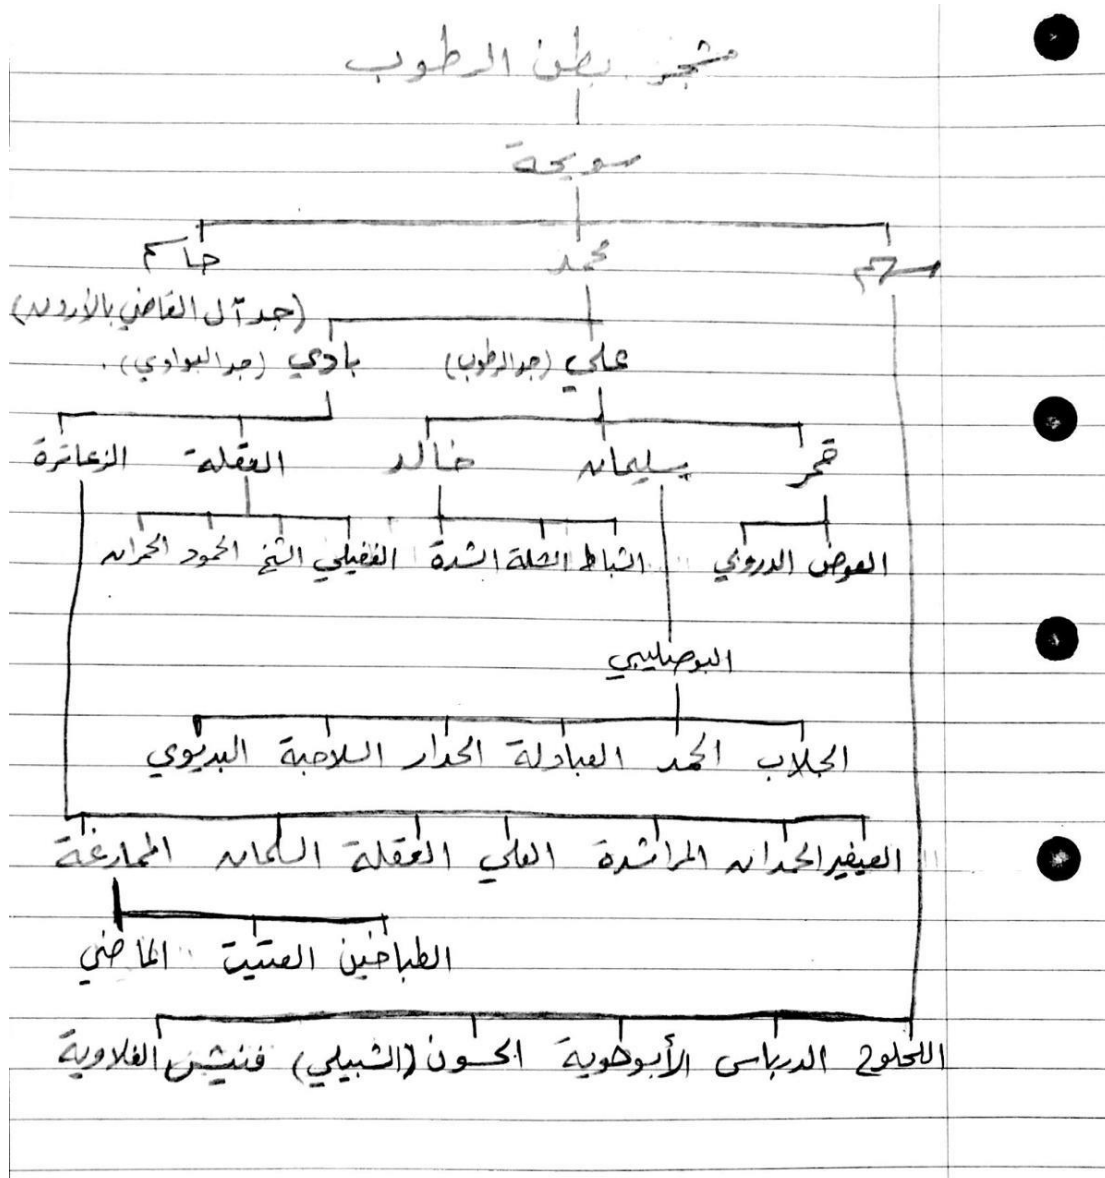 مشجر بطن الرطوب
سويحة
محمد جاسم
(جد آل القاضي بالأردن)
علي (جد الرطوب) بادي (جد البوادي).
قمر سليمان خالد العقلة الزعاترة
العوض الدروبي الشباط الشلة الشدة الفضيلي الشيخ الحمود الحمران
البوصليبي
الجلاب الحمد العبادلة الحدار السلاحبة البديوي
العيفير الحمدان المراشدة العلي العقلة السلمان الممارغة
الطباخين العتيت الماضي
اللحلوح الدرباس الأبوطوية الحسون (الشبيلي) فنيش الفلاوية